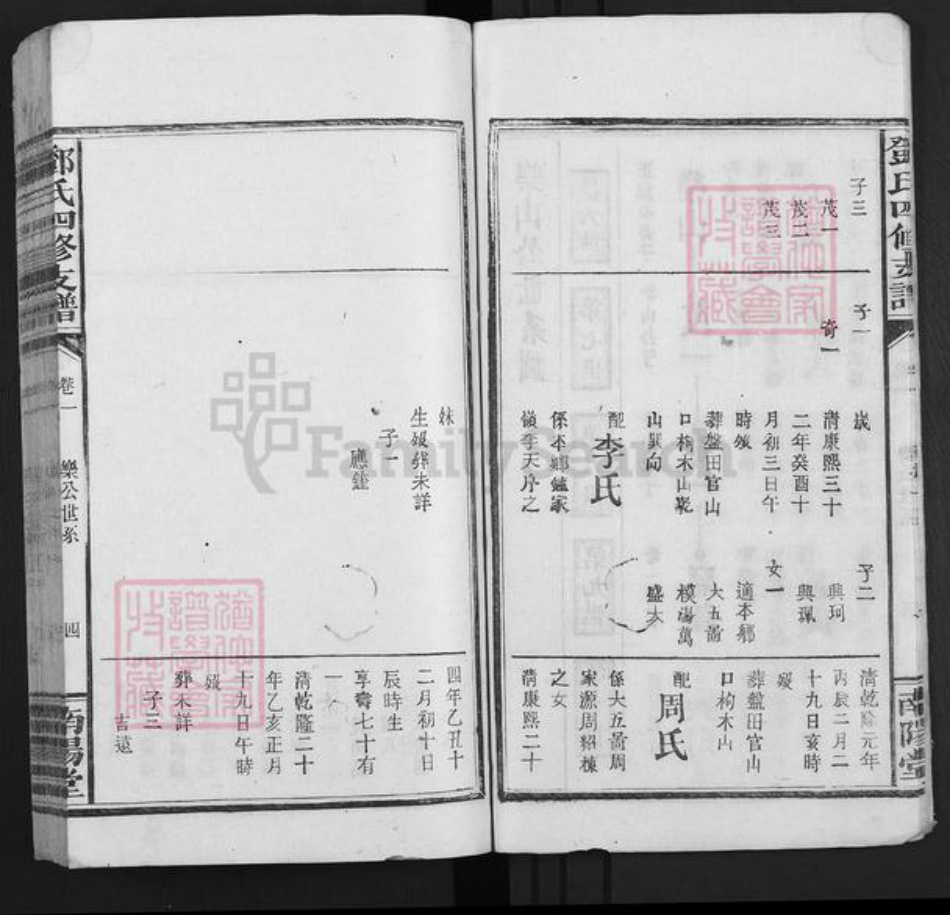 鄧氏四修支譜
南陽堂
子三
茂一
茂二
茂三
子一
奇一
歲
清康熙三十
二年癸酉十
月初三日午
時歿
葬盤田官山
口枸木山乾
山巽向
配
李氏
係本鄉鑪家
嶺李天序之
子二
興珂
興珮
女一
適本鄉
大五啚
模陽萬
盛大
清乾隆元年
丙辰二月二
十九日亥時
歿
葬盤田官山
口枸木山
配
周氏
係大五啚周
家源周紹棟
之女
清康熙二十
妹
生歿葬未詳
子一
應鍾
四年乙丑十
二月初十日
辰時生
享壽七十有
一
清乾隆二十
年乙亥正月
十九日午時
歿
葬未詳
子三
吉遠
鄧氏四修支譜
卷一
樂公世系
四
南陽堂
FamilySearch